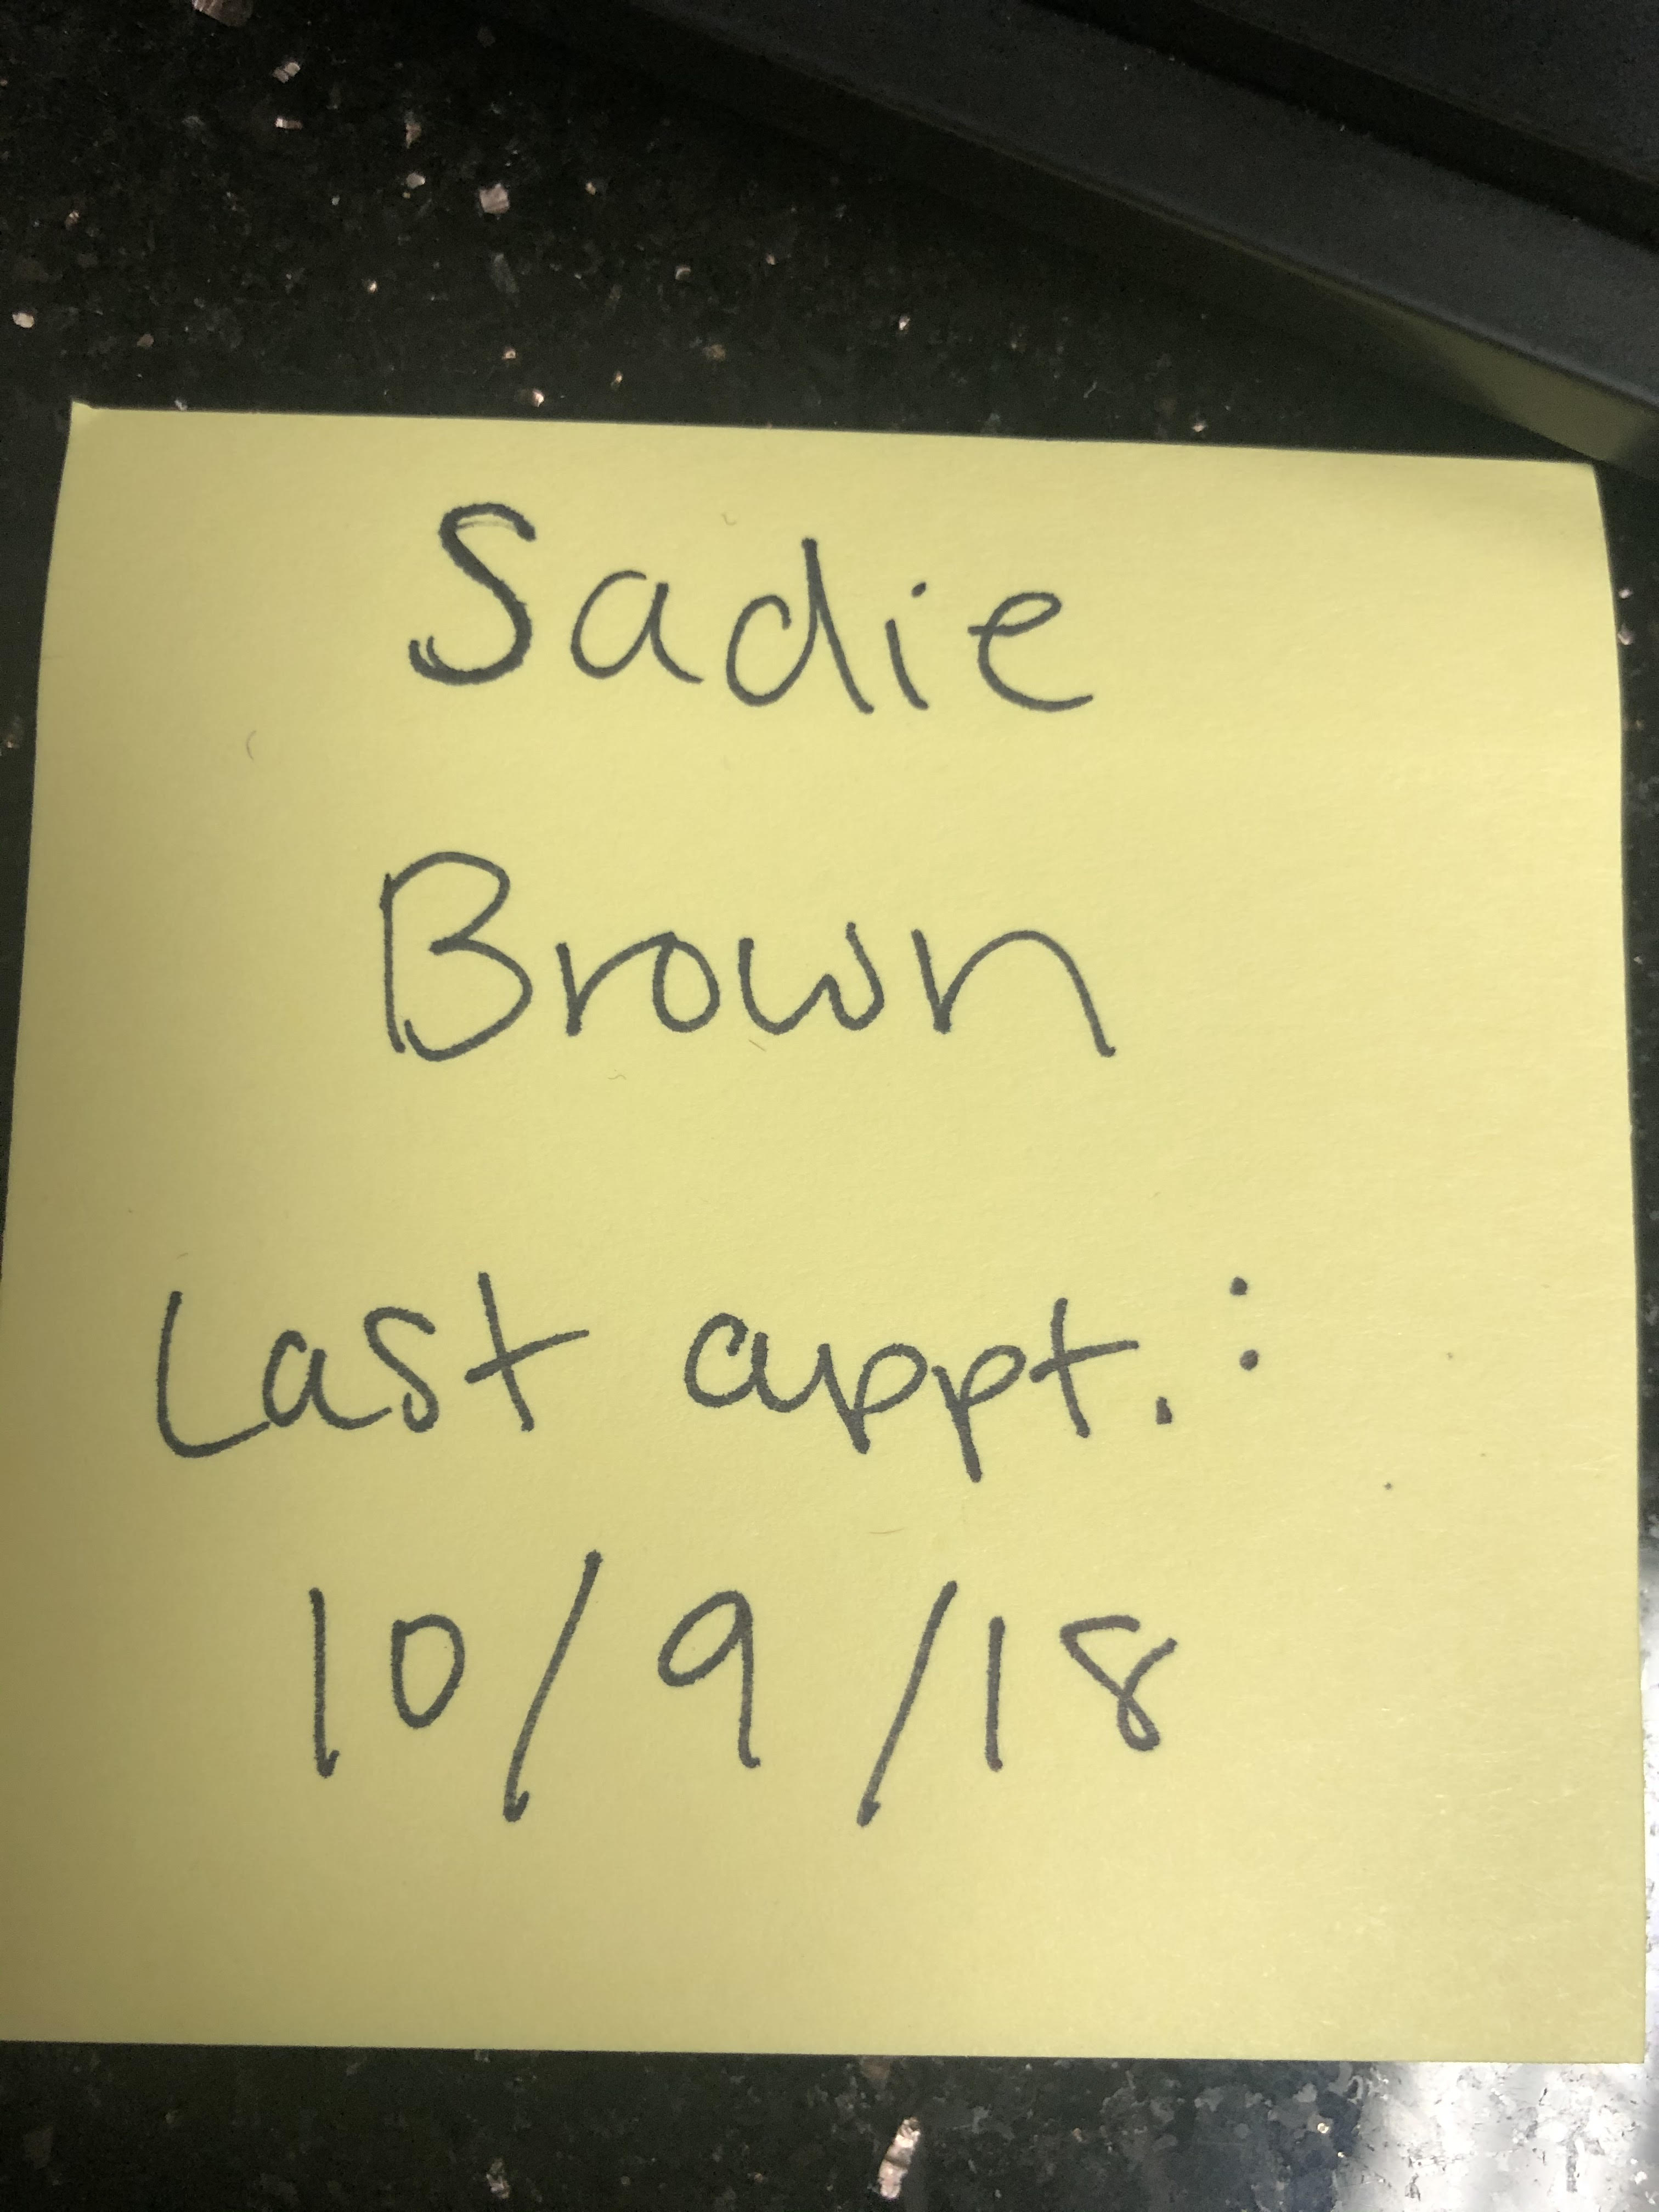 Sadie
Brown
Last appt.:
10/9/18